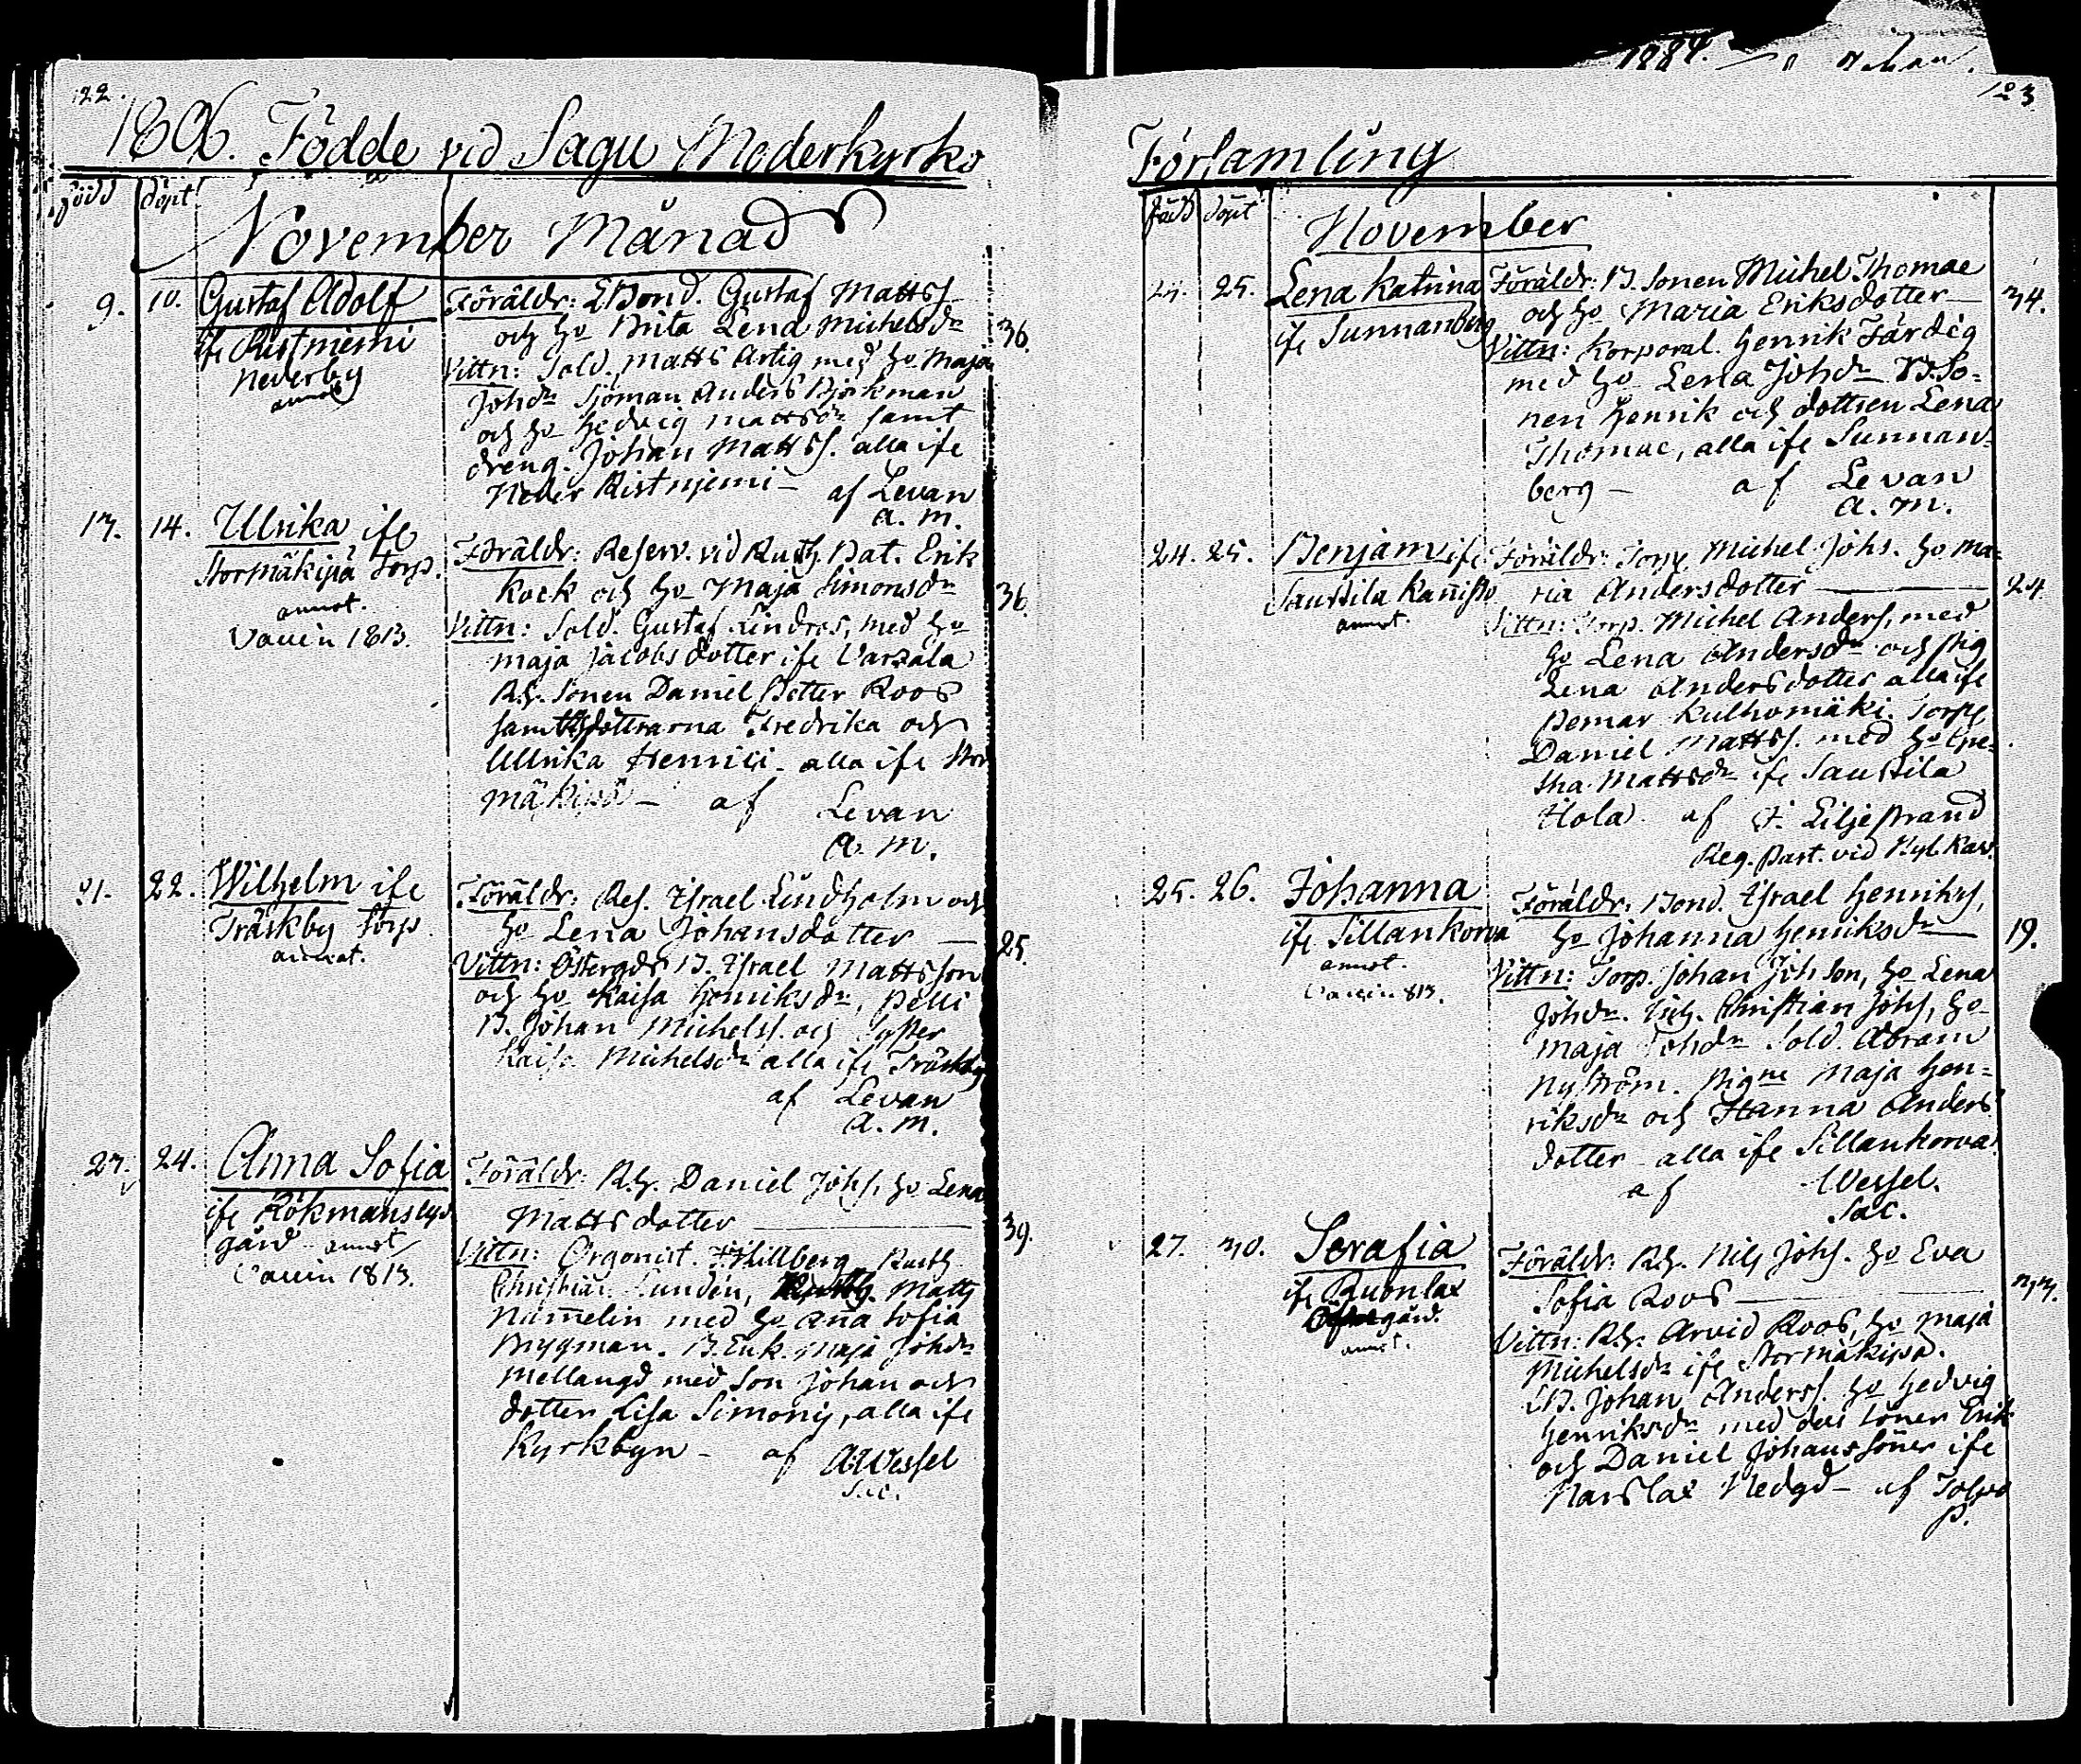 122.
1806. Födde vid Sagu Moderkyrko
född döpt
November Månad
9. 10. Gustaf Adolf
ife Ristniemi
Nederby
annot
Föräldr: Bond. Gustaf Mattss
och Ho Brita Lena Michelsdr
36.
Vittn: Sold. Matts Artig med Ho Maja
Johdr Sjöman Anders Björkman
och Ho Hedvig Mattsdr samt
dreng. Johan Mattss. alla ife
Neder Ristnjemi – af Levan
a. m.
13. 14. Ulrika ife
Stormäkipä Torp.
annot.
Vaccin 1813.
Föräldr: Reserv. vid Rusth. Bat. Erik
Kock och Ho Maja Simonsdr
36.
Vittn: Sold. Gustaf Lindros, med Ho
Maja Jacobsdotter ife Varzala
Rh. Sonen Daniel Petter Roos
samt döttrarna Fredrika och
Ullrika Henrici – alla ife Stor
mäkipä – af Levan
a. m.
21. 22. Wilhelm ife
Träskby Torp.
annot.
Föräldr: Res. Israel Lindholm och
Ho Lena Johansdotter —
25.
Vittn: Östergds B. Israel Mattsson
och Ho Kaisa Henriksdr, Pelli
B. Johan Michelss. och Syster
Kaisa Michelsdr alla ife Träskby
af Levan
a. m.
23. 24. Anna Sofia
ife Rökmans
gård annot
Vaccin 1813.
Föräldr: Rh. Daniel Johs. Ho Lena
Mattsdotter —
39.
Vittn: Orgonist. Hillberg, Rusth
Christian Lundén, Matts
Namelin med Ho Ana Sofia
Brygman. B. Enk. Maja Johdr
Mellangd med Son Johan och
dotter Lisa Simonis, alla ife
Kyrkbyn – af A. Wessel
Sac.
1884.
123
Församling
född döpt
November
23. 25. Lena Katrina
ife Sunnanberg
Föräldr: B. Sonen Michel Thomae
och Ho Maria Eriksdotter —
34.
Vittn: Korporal. Henrik Färdig
med Ho Lena Johdr B. So=
nen Henrik och dottren Lena
Thomae, alla ife Sunnan=
berg – af Levan
a. m.
24. 25. Benjam ife
Saustila Kanisto
annot.
Föräldr: Torp. Michel Johs. Ho Ma=
ria Andersdotter —
24
Vittn: Torp. Michel Anders, med
Ho Lena Andersdr och Pig
Lena Andersdotter alla ife
Pemar Kulhomäki. Torp.
Daniel Mattss. med Ho Gre=
tha Mattsdr ife Saustila
Hola. af J. Liljestrand
Reg. Past. vid Nyl. Kav.
25. 26. Johanna
ife Sillankorva
annot.
Vaccin 813.
Föräldr: Bond. Israel Henrikss,
Ho Johanna Henriksdr —
19.
Vittn: Torp. Johan Johson, Ho Lena
Johdr. Christian Johs, Ho
Maja Johdr Sold. Abram
Nyström. Pigne Maja Hen=
riksdr och Hanna Anders
dotter – alla ife Sillankorva.
af Wessel.
Sac.
27. 30. Serafia
ife Ruonlax
gård.
annot.
Föräldr: Rh. Nils Johs. Ho Eva
Sofia Roos —
33.
Vittn: Rh. Arvid Roos, Ho Maja
Michelsdr ife Stormäkipä.
B. Johan Anderss. Ho Hedvig
Henriksdr med dess söner Erik
och Daniel Johanssöner ife
Karslax Nedgd – af Tolpo
P.